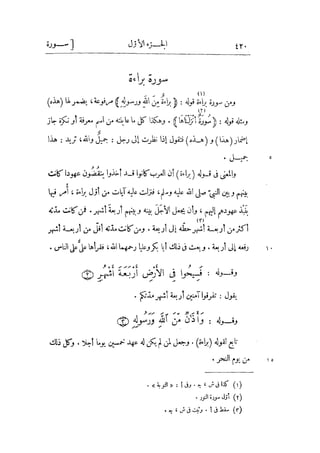 ٤٢٠ الجزء الأوّل [ســورة
سورة براءة
ومن سورة براءة قوله : (١) ﴿ براءةٌ من الله ورسوله ﴾ مرفوعة ، يضمر لها (هذه)
ومثله قوله : ﴿ سورةٌ أنزلناها ﴾ (٢) . وهكذا كل ما عاينته من اسم معرفة أو نكرة جاز
إضمار (هذا) و (هـذه) فتقول إذا نظرت إلى رجل : جميلٌ والله ، تريد : هذا
جميــل . ٥
والمعنى فى قـوله (براءة) أن العرب كانوا قـد أخذوا ينقضُون عهودا كانت
بينهم وبين النبىّ صلى الله عليه وسلم ، فنزلت عليه آيات من أوّل براءة ، أُمر فيها
بنَبْذ عهودهم إليهم ، وأن يجعل الأجَل بينه وبينهم أربعةَ أشهر . فمن كانت مدّته
أكثر من أربعــة أشهر حطّه إلى أربعة . ومن كانت مدّته أقلّ من أربعــة أشهر (٣)
رفعه إلى أربعة . وبعث فى ذلك أبا بكر وعليا رحمهما الله ، فقرأها علىٌّ على الناس . ١٠
وقــوله : فَسِيحُوا فِى الْأَرْضِ أَرْبَعَةَ أَشْهُرٍ ٢
يقول : تفرقوا آمنين أربعة أشهر مدّتكم .
وقــوله : وَأَذَٰنٌ مِّنَ ٱللَّهِ وَرَسُولِهِ ٣
تابع لقوله (براءة) . وجعل لمن لم يكن له عهد خمسين يوما أجلا . وكل ذلك
من يوم النحر . ١٥
(١) كذا فى ش ، ج . وفى أ : « التوبة » .
(٢) أوّل سورة النور .
(٣) سقط فى أ . وثبت فى ش ، ج .